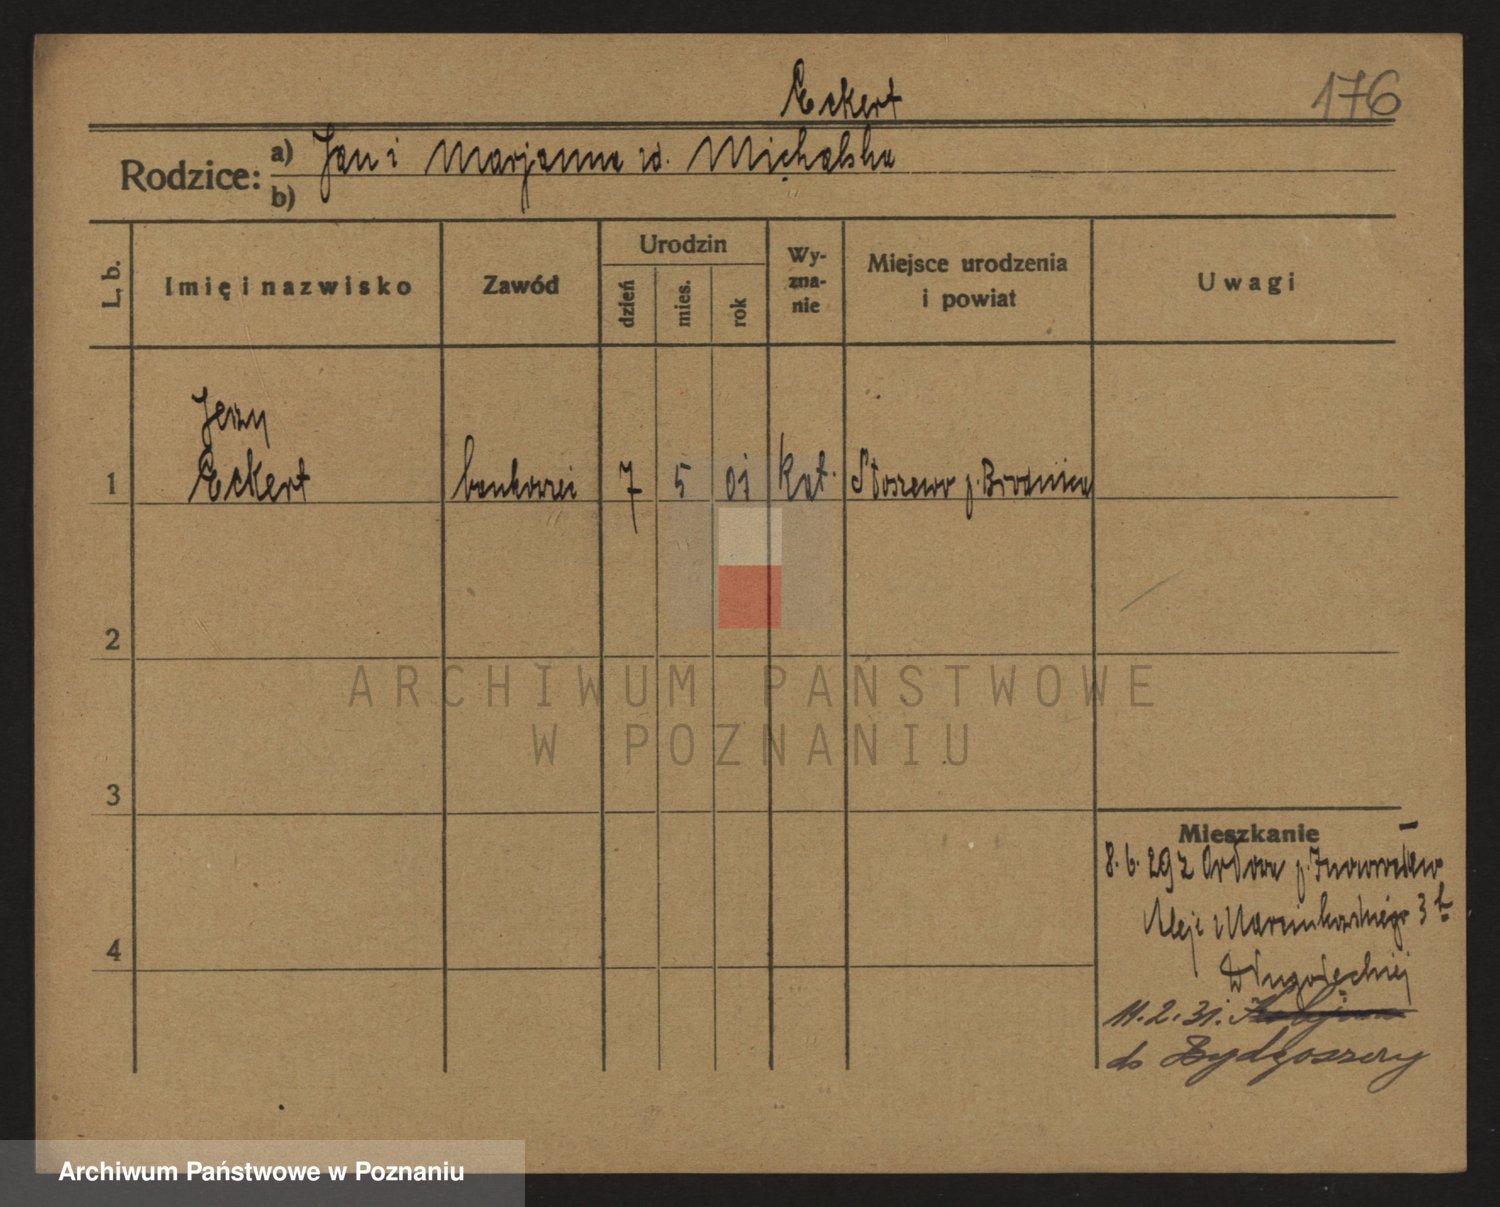 Eckert
176
Rodzice: a) Jan i Marjanna rd. Michalska
b)
L. b.
Imię i nazwisko
Zawód
Urodzin
dzień
mies.
rok
Wy-
zna-
nie
Miejsce urodzenia
i powiat
Uwagi
Jerzy
1 Eckert bankowiei 7 5 01 kat. Stoszewo p. Brodnica
2
ARCHIWUM PAŃSTWOWE
W POZNANIU
3
Mieszkanie
8. 6. 29 z p. Inowrocław
Aleje Marcinkowskiego 3
4
11. 2. 31.
do Bydgoszczy
Archiwum Państwowe w Poznaniu